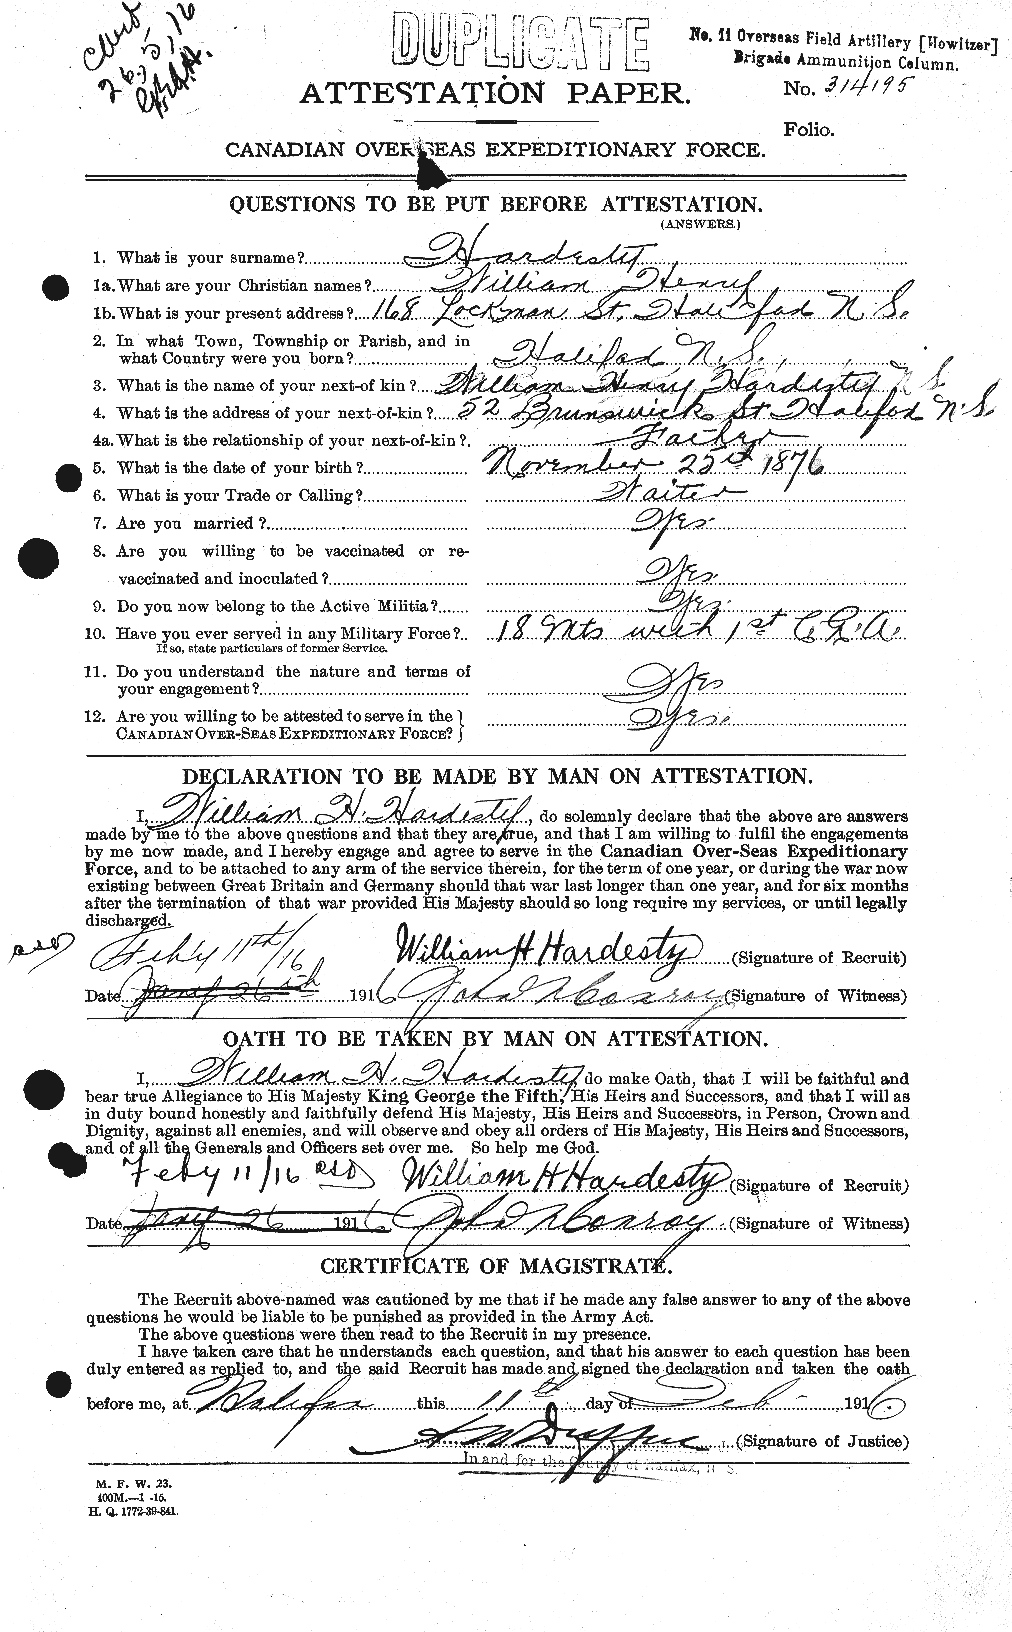 DUPLICATE
No. 11 Overseas Field Artillery [Howitzer]
Brigade Ammunition Column.
26/5/16
ATTESTATION PAPER.
No. 314195
Folio.
CANADIAN OVER-SEAS EXPEDITIONARY FORCE.
QUESTIONS TO BE PUT BEFORE ATTESTATION.
(ANSWERS.)
1. What is your surname? Hardesty
1a. What are your Christian names? William Henry
1b. What is your present address? 168 Lockman St. Halifax N.S.
2. In what Town, Township or Parish, and in
what Country were you born? Halifax N.S.,
3. What is the name of your next-of kin? William Henry Hardesty N.S.
4. What is the address of your next-of-kin? 52 Brunswick St Halifax N.S
4a. What is the relationship of your next-of-kin? Father
5. What is the date of your birth? November 25th 1876
6. What is your Trade or Calling? Waiter
7. Are you married? Yes.
8. Are you willing to be vaccinated or re-
vaccinated and inoculated? Yes.
9. Do you now belong to the Active Militia? Yes.
10. Have you ever served in any Military Force? 18 Mts with 1st C.G.A.
If so, state particulars of former Service.
11. Do you understand the nature and terms of
your engagement? Yes
12. Are you willing to be attested to serve in the }
CANADIAN OVER-SEAS EXPEDITIONARY FORCE? } Yes.
DECLARATION TO BE MADE BY MAN ON ATTESTATION.
I, William H. Hardesty, do solemnly declare that the above are answers
made by me to the above questions and that they are true, and that I am willing to fulfil the engagements
by me now made, and I hereby engage and agree to serve in the Canadian Over-Seas Expeditionary
Force, and to be attached to any arm of the service therein, for the term of one year, or during the war now
existing between Great Britain and Germany should that war last longer than one year, and for six months
after the termination of that war provided His Majesty should so long require my services, or until legally
discharged.
Feby 11th/16 William H Hardesty (Signature of Recruit)
Date Jany 26th 1916 John N Conroy (Signature of Witness)
OATH TO BE TAKEN BY MAN ON ATTESTATION.
I, William H. Hardesty do make Oath, that I will be faithful and
bear true Allegiance to His Majesty King George the Fifth, His Heirs and Successors, and that I will as
in duty bound honestly and faithfully defend His Majesty, His Heirs and Successors, in Person, Crown and
Dignity, against all enemies, and will observe and obey all orders of His Majesty, His Heirs and Successors,
and of all the Generals and Officers set over me. So help me God.
Feby 11/16 William H Hardesty (Signature of Recruit)
Date Jany 26 1916 John N Conroy (Signature of Witness)
CERTIFICATE OF MAGISTRATE.
The Recruit above-named was cautioned by me that if he made any false answer to any of the above
questions he would be liable to be punished as provided in the Army Act.
The above questions were then read to the Recruit in my presence.
I have taken care that he understands each question, and that his answer to each question has been
duly entered as replied to, and the said Recruit has made and signed the declaration and taken the oath
before me, at Halifax this 11th day of Feb 1916
(Signature of Justice)
In and for the County of Halifax, N. S.
M. F. W. 23.
400M.—1 -16.
H. Q. 1772-39-841.